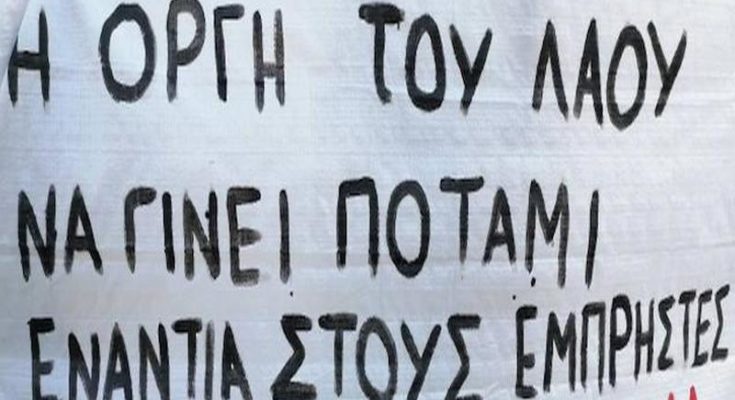 Η ΟΡΓΗ ΤΟΥ ΛΑΟΥ
ΝΑ ΓΙΝΕΙ ΠΟΤΑΜΙ
ΕΝΑΝΤΙΑ ΣΤΟΥΣ ΕΜΠΡΗΣΤΕΣ